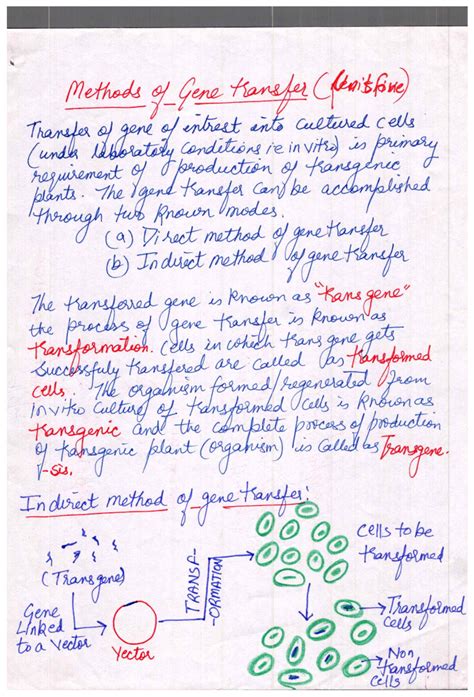 Methods of Gene transfer (Unit: five)
Transfer of gene of intrest into cultured cells
(under laboratory conditions i.e in vitro) is primary
requirement of production of transgenic
plants. The gene transfer can be accomplished
through two known modes.
(a) Direct method of gene transfer
(b) Indirect method of gene transfer
The transferred gene is known as "transgene"
the process of gene transfer is known as
transformation. Cells in which trans gene gets
successfuly transfered are called as transformed
cells. The organism formed/regenerated from
In vitro culture of transformed cells is known as
transgenic and the complete process of production
of transgenic plant (organism) is called as Transgene-
-sis.
Indirect method of gene transfer:
(Transgene)
Gene
Linked
to a Vector
Vector
TRANSF-
-ORMATION
Cells to be
transformed
Transformed
Cells
Non
transformed
cells